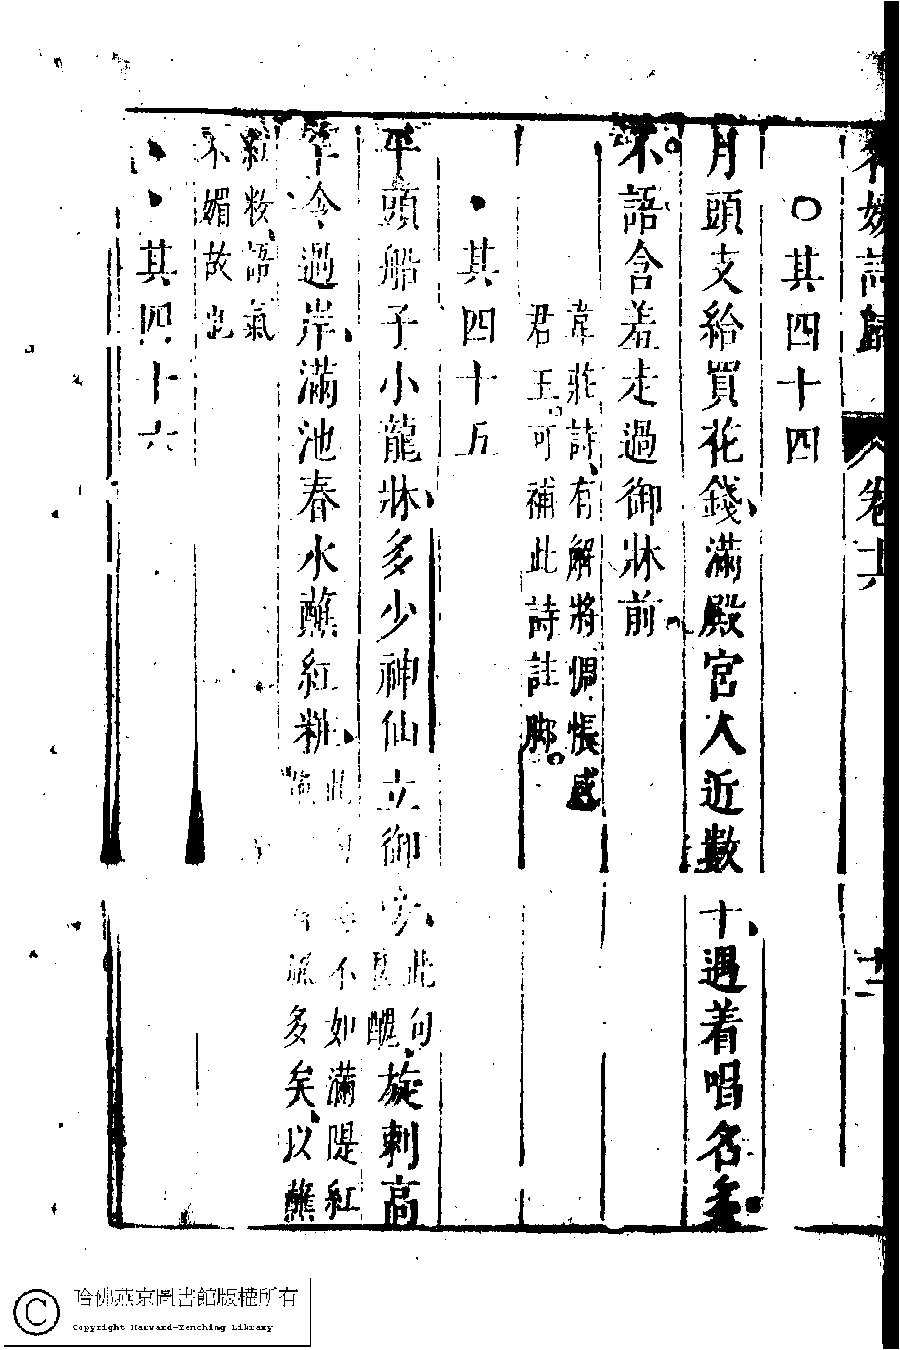 名媛詩歸 卷十六 十二
○其四十四
月頭支給買花錢滿殿宮人近數十遇着唱名多
不語含羞走過御牀前
韋莊詩有解將惆悵感
君王可補此詩註脚
其四十五
平頭船子小龍牀多少神仙立御旁此句
舊醜旋刺高
竿令過岸滿池春水蘸紅粧此句
不如滿隄紅
多矣以蘸
紅妝語氣
不媚故也
其四十六
哈佛燕京圖書館版權所有
Copyright Harvard-Yenching Library